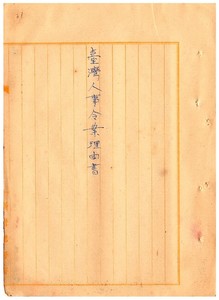 臺灣人事令案理由書